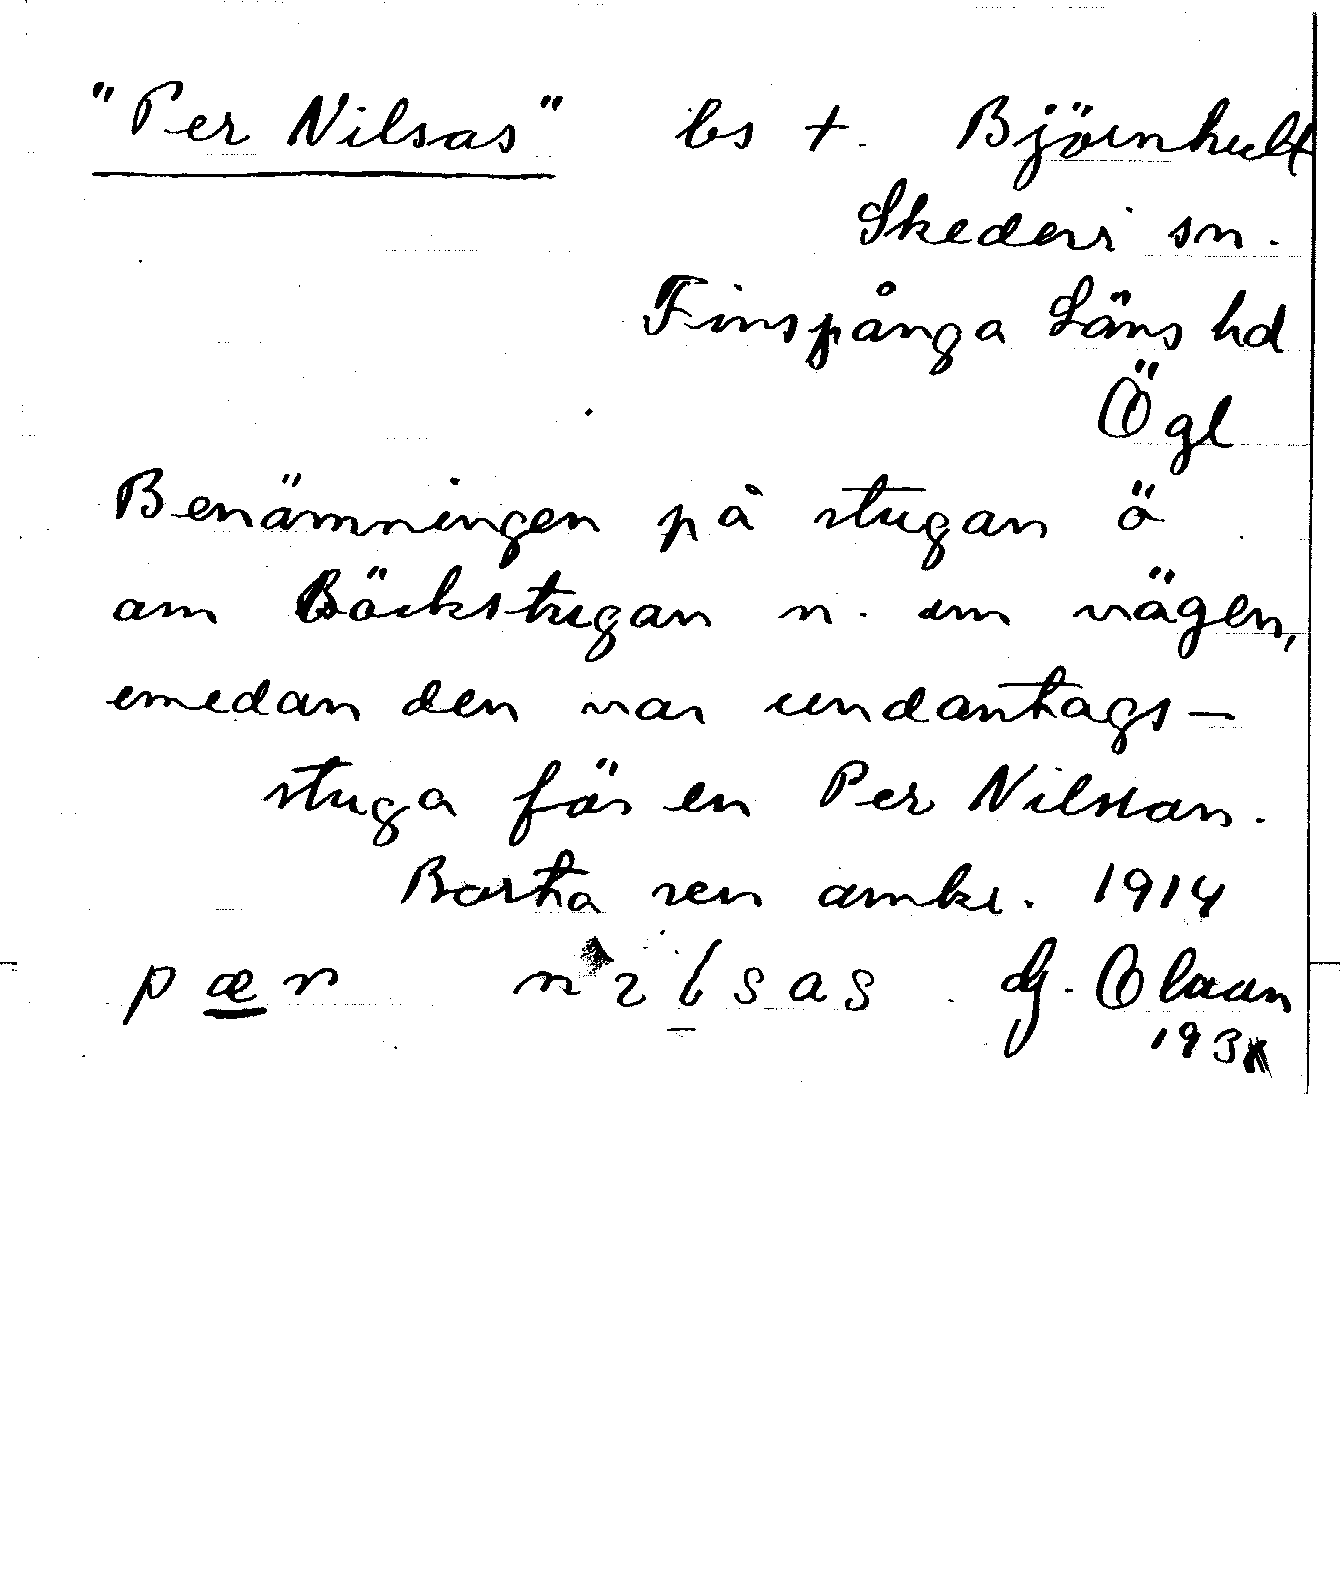 "Per Nilsas" bs t. Björnhult
Skedevi sn.
Finspånga Läns hd
Ögl
Benämningen på stugan ö
om Bäckstugan n. om vägen,
emedan den var undantags-
stuga för en Per Nilsson.
Borta sen omkr. 1914
pær nilsas G. Olsson